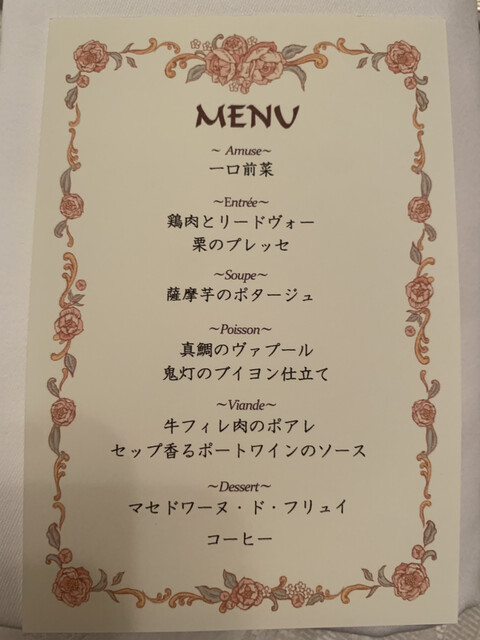 MENU
～ Amuse～
一口前菜
～Entrée～
鶏肉とリードヴォー
栗のブレッセ
～Soupe～
薩摩芋のポタージュ
～Poisson～
真鯛のヴァプール
鬼灯のブイヨン仕立て
～Viande～
牛フィレ肉のポアレ
セップ香るポートワインのソース
～Dessert～
マセドワーヌ・ド・フリュイ
コーヒー